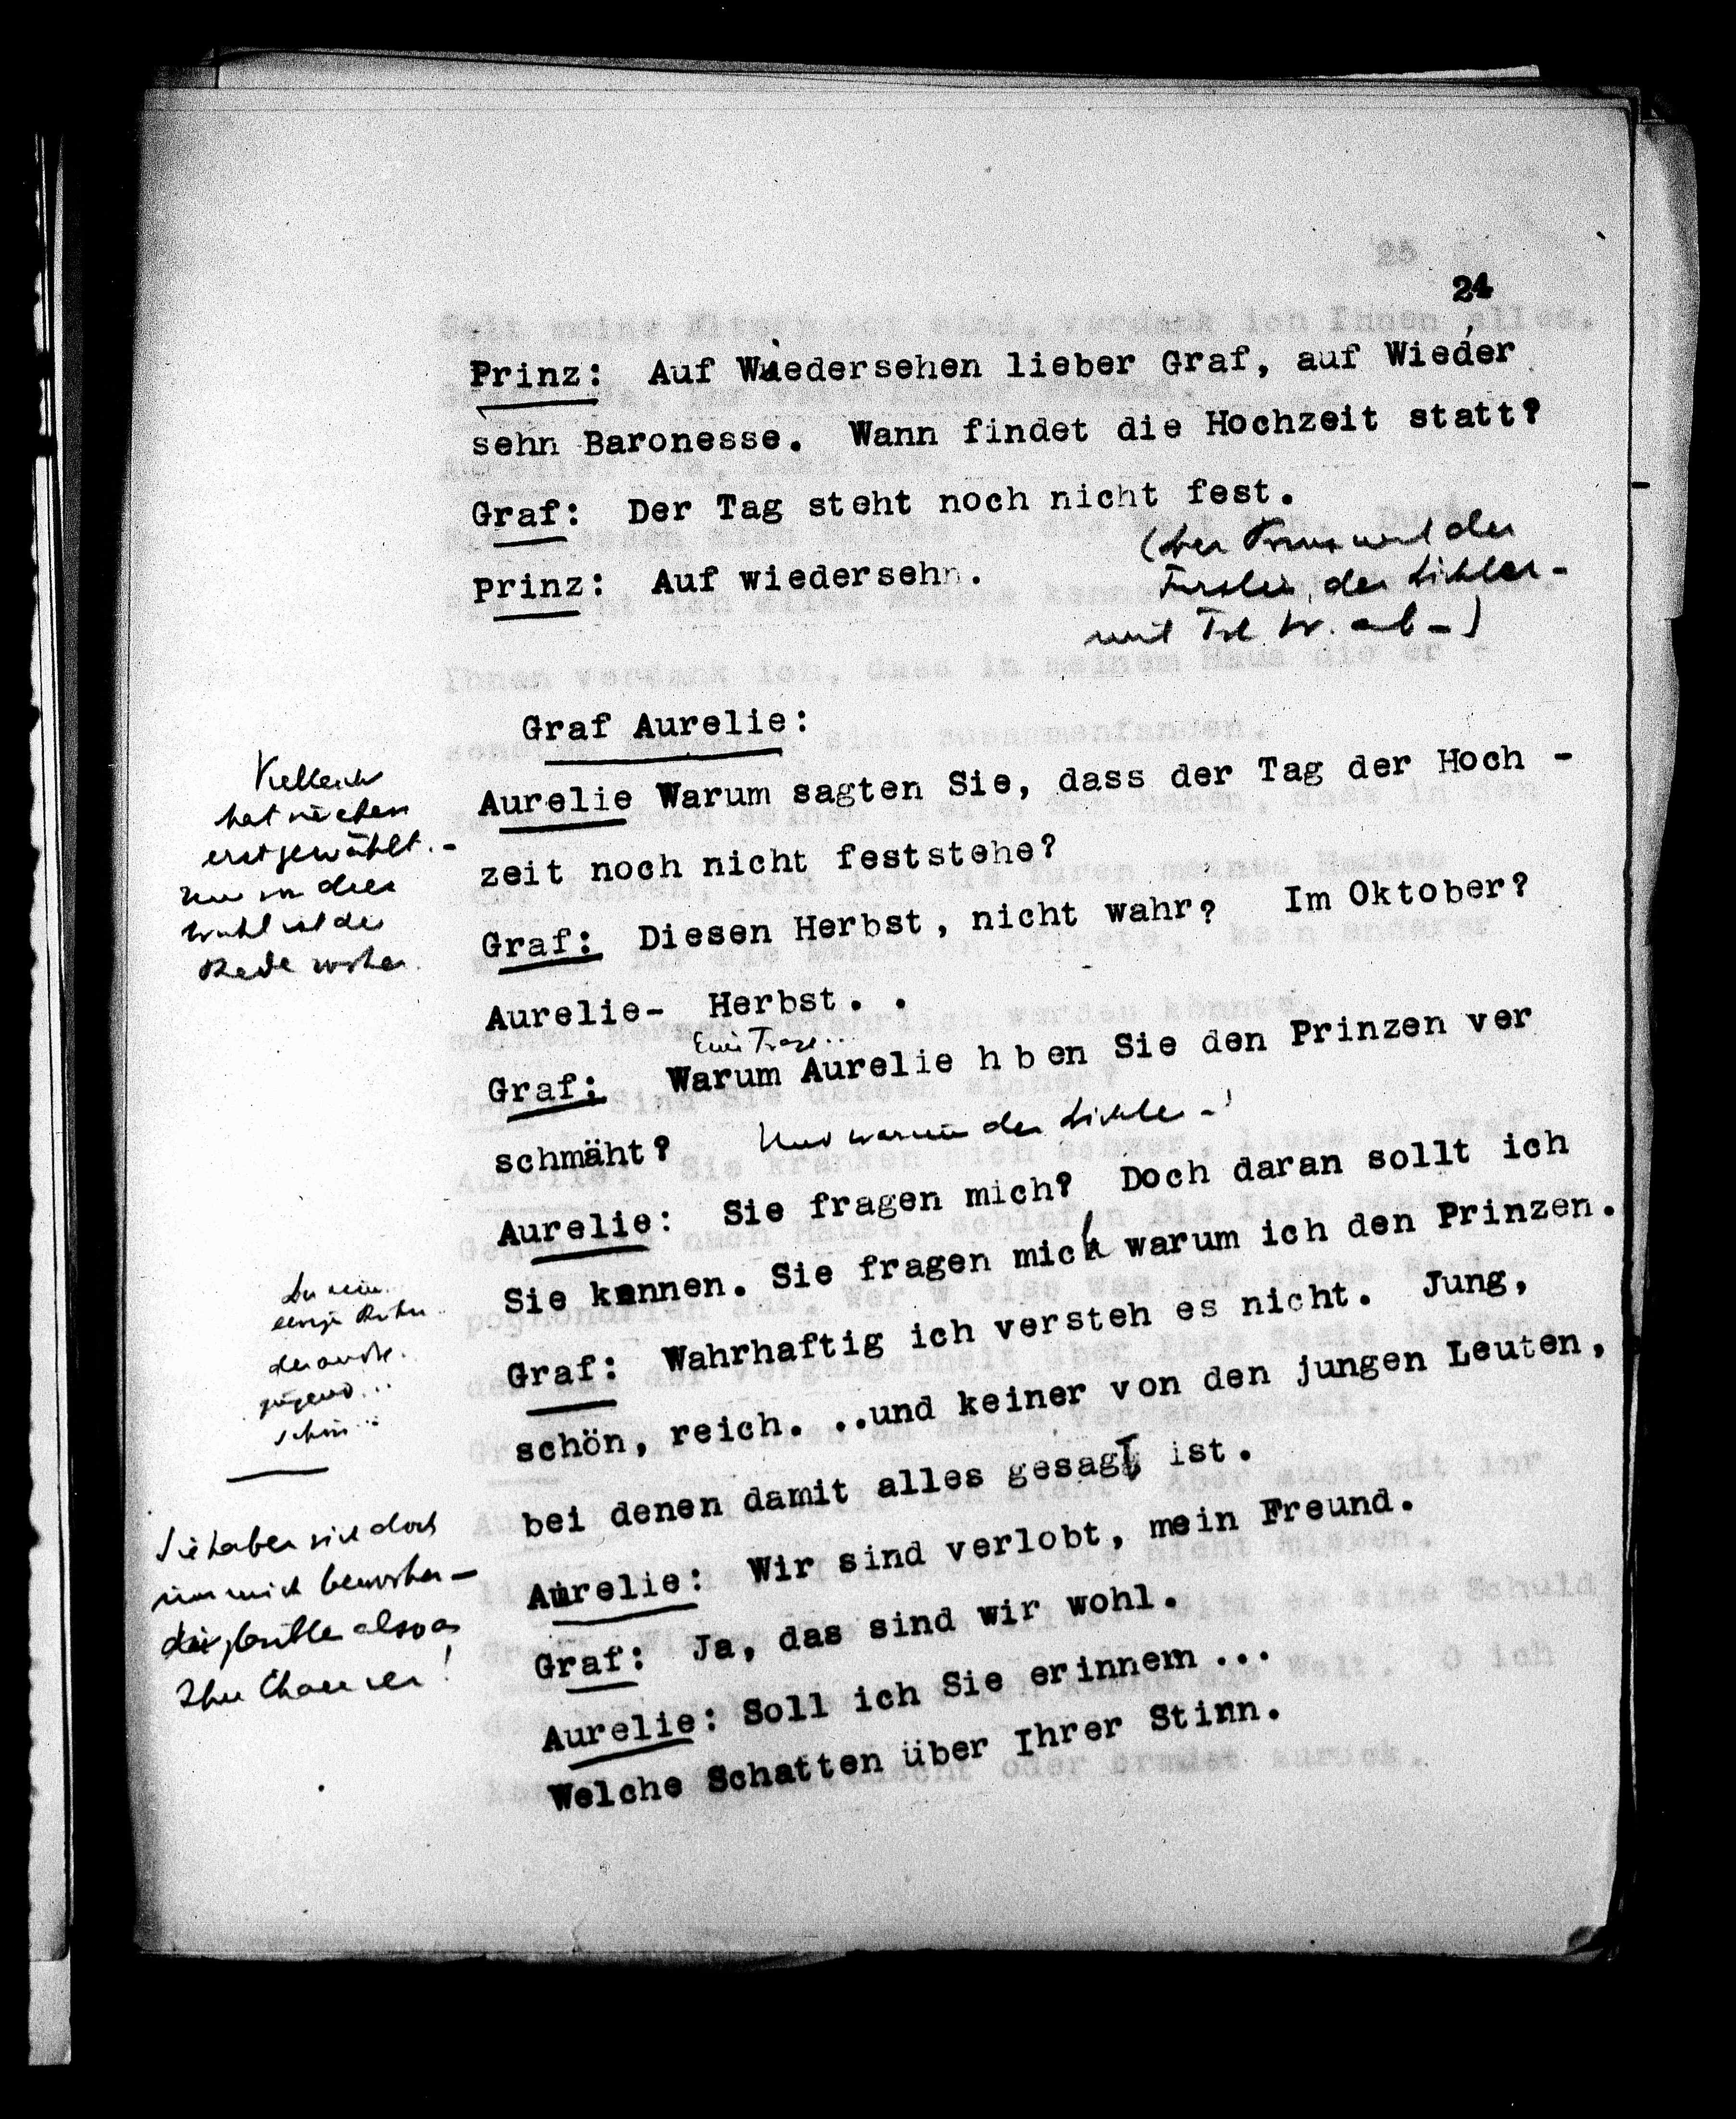 24
Prinz: Auf Wiedersehen lieber Graf, auf Wieder
sehn Baronesse. Wann findet die Hochzeit statt?
Graf: Der Tag steht noch nicht fest.
Prinz: Auf wiedersehn.
(Der Prinz und der
der Dichter -
mit ab -)
Graf Aurelie:
Aurelie Warum sagten Sie, dass der Tag der Hoch -
zeit noch nicht feststehe?
Graf: Diesen Herbst, nicht wahr? Im Oktober?
Aurelie- Herbst. .
Eine Frage...
Graf: Warum Aurelie h ben Sie den Prinzen ver
schmäht? Und warum den Dichter -!
Aurelie: Sie fragen mich? Doch daran sollt ich
Sie kennen. Sie fragen mich warum ich den Prinzen.
Graf: Wahrhaftig ich versteh es nicht. Jung,
schön, reich. ..und keiner von den jungen Leuten,
bei denen damit alles gesagt ist.
Aurelie: Wir sind verlobt, mein Freund.
Graf: Ja, das sind wir wohl.
Aurelie: Soll ich Sie erinnern...
Welche Schatten über Ihrer Stirn.
Vielleicht
hat
erst gewählt. -
Nun von der
Wahl ist die
Rede
der andre.
Jugend...
schön...
Sie haben sich doch
um mich beworben -
glaubten also an
Ihre Chancen!